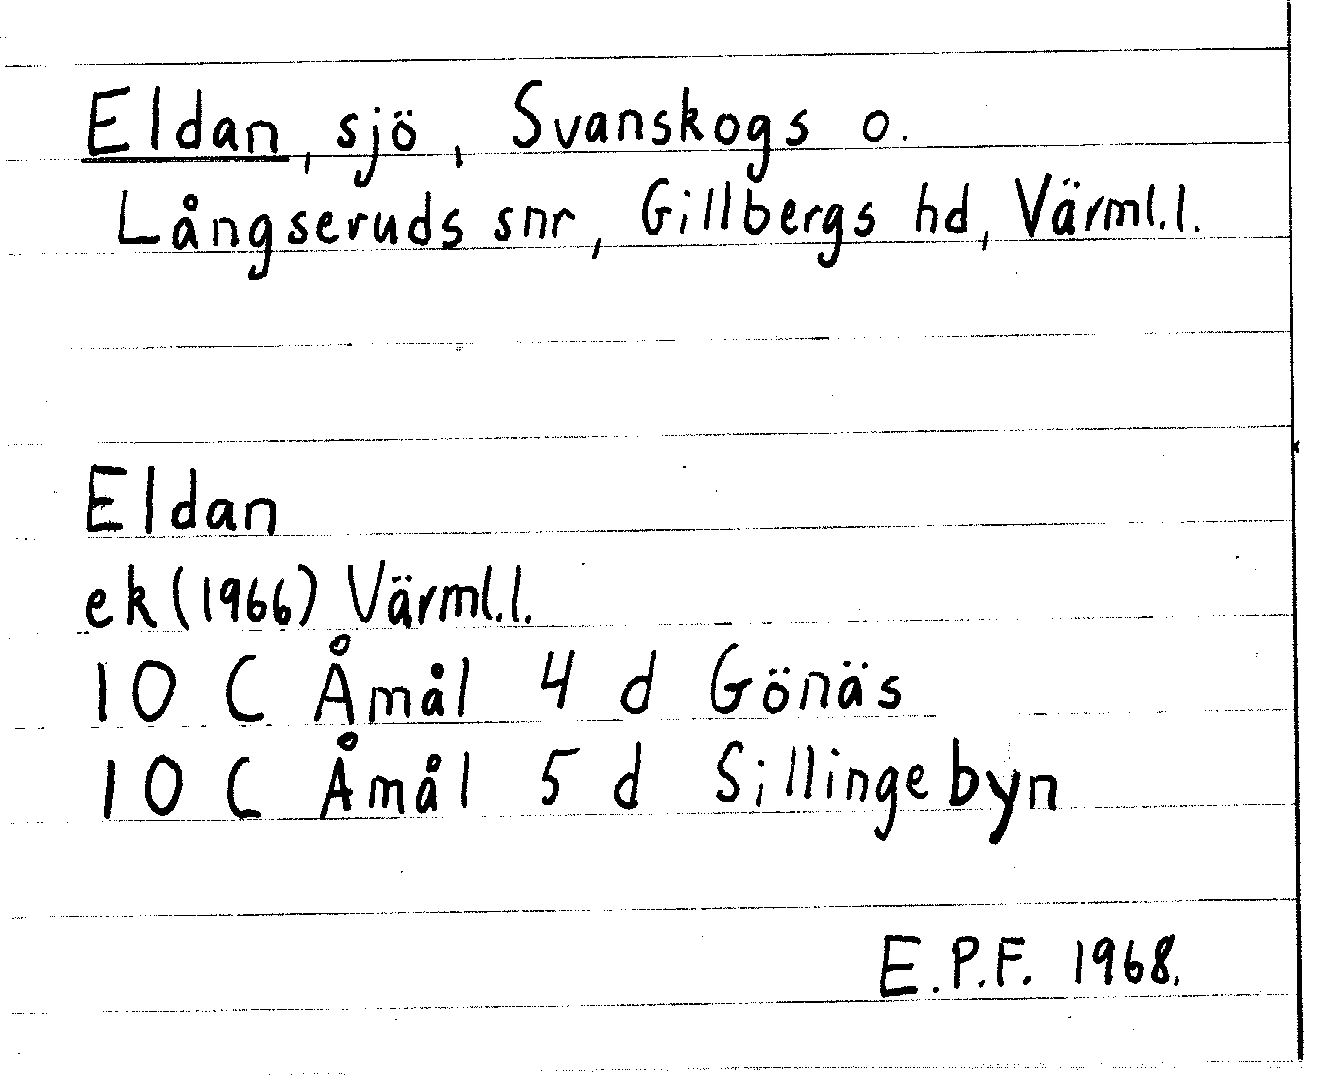 Eldan, sjö, Svanskogs o.
Långseruds snr, Gillbergs hd, Värml.l.
Eldan
ek (1966) Värml.l.
10 C Åmål 4 d Gönäs
10 C Åmål 5 d Sillingebyn
E.P.F. 1968.